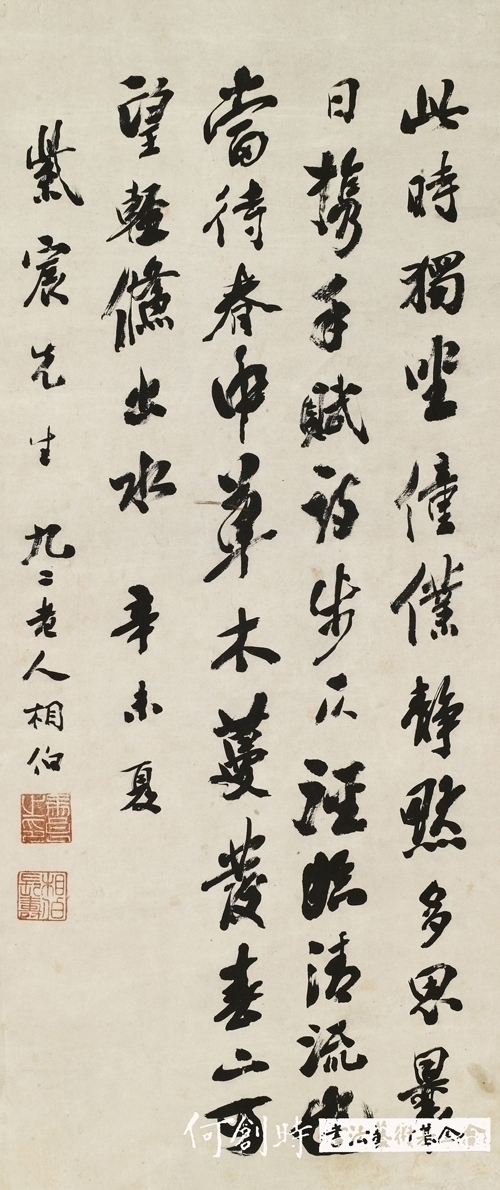 此時獨坐僮僕靜默多思曩
日携手賦詩步仄逕臨清流也
當待春中草木蔓發春山可
望輕儵出水 辛未夏
紫宸先生 九二老人相伯
相伯長壽
何創時書法藝術基金會